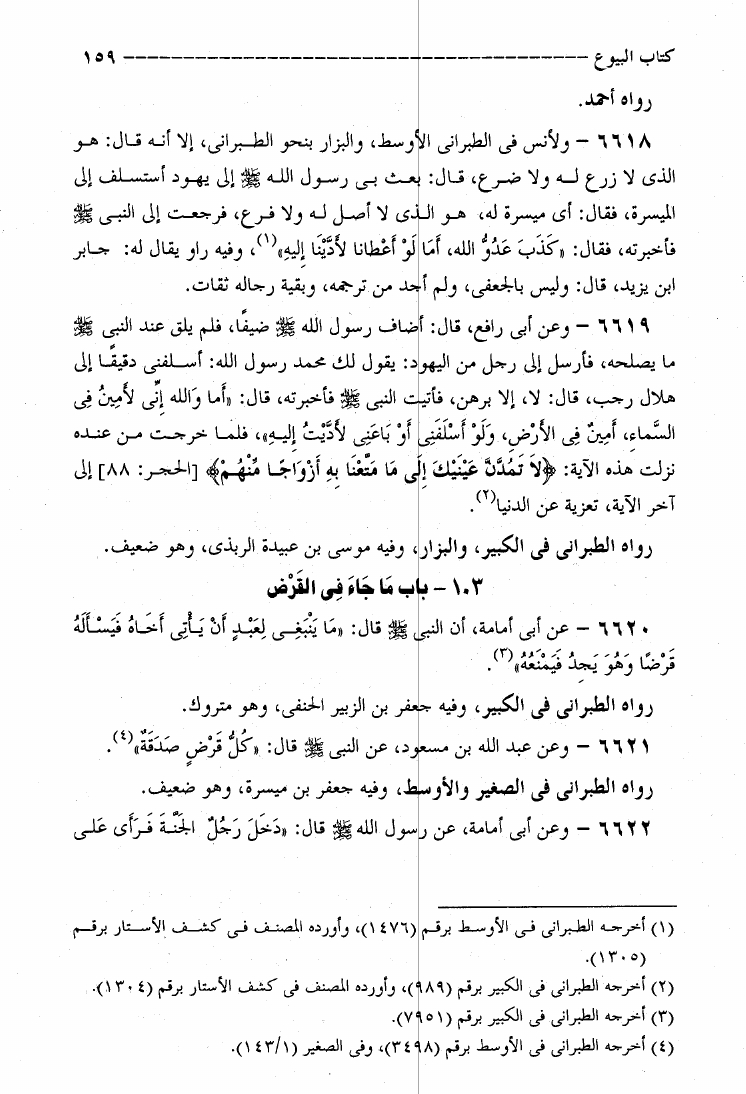 كتاب البيوع ---------------------------------------- ١٥٩
رواه أحمد.
٦٦١٨ – ولأنس فى الطبرانى الأوسط، والبزار بنحو الطبرانى، إلا أنه قال: هو
الذى لا زرع له ولا ضرع، قال: بعث بى رسول الله ﷺ إلى يهود أستسلف إلى
الميسرة، فقال: أى ميسرة له، هو الذى لا أصل له ولا فرع، فرجعت إلى النبى ﷺ
فأخبرته، فقال: «كَذَبَ عَدُوُّ الله، أَمَا لَوْ أَعْطانا لأَدَّيْنَا إِليهِ»(١)، وفيه راو يقال له: جابر
ابن يزيد، قال: وليس بالجعفى، ولم أجد من ترجمه، وبقية رجاله ثقات.
٦٦١٩ – وعن أبى رافع، قال: أضاف رسول الله ﷺ ضيفًا، فلم يلق عند النبى ﷺ
ما يصلحه، فأرسل إلى رجل من اليهود: يقول لك محمد رسول الله: أسلفنى دقيقًا إلى
هلال رجب، قال: لا، إلا برهن، فأتيت النبى ﷺ فأخبرته، قال: «أما وَالله إِنِّى لأمِينٌ فِى
السَّماءِ، أمِينٌ فِى الأَرْضِ، وَلَوْ أَسْلَفَنِى أَوْ بَاعَنِى لأَدَّيْتُ إِليهِ»، فلما خرجت من عنده
نزلت هذه الآية: ﴿لاَ تَمُدَّنَّ عَيْنَيْكَ إِلَى مَا مَتَّعْنَا بِهِ أَزْوَاجًا مِّنْهُمْ﴾ [الحجر: ٨٨] إلى
آخر الآية، تعزية عن الدنيا(٢).
رواه الطبرانى فى الكبير، والبزار، وفيه موسى بن عبيدة الربذى، وهو ضعيف.
١٠٣ – باب مَا جَاءَ فِى القَرْض
٦٦٢٠ – عن أبى أمامة، أن النبى ﷺ قال: «مَا يَنْبَغِى لِعَبْدٍ أَنْ يَأْتِى أَخَاهُ فَيَسْأَلَهُ
قَرْضًا وَهُوَ يَجِدُ فَيَمْنَعُهُ»(٣).
رواه الطبرانى فى الكبير، وفيه جعفر بن الزبير الحنفى، وهو متروك.
٦٦٢١ – وعن عبد الله بن مسعود، عن النبى ﷺ قال: «كُلُّ قَرْضٍ صَدَقَةٌ»(٤).
رواه الطبرانى فى الصغير والأوسط، وفيه جعفر بن ميسرة، وهو ضعيف.
٦٦٢٢ – وعن أبى أمامة، عن رسول الله ﷺ قال: «دَخَلَ رَجُلٌ الجَنَّةَ فَرَأى عَلى
(١) أخرجه الطبرانى فى الأوسط برقم (١٤٧٦)، وأورده المصنف فى كشف الأستار برقم
(١٣٠٥).
(٢) أخرجه الطبرانى فى الكبير برقم (٩٨٩)، وأورده المصنف فى كشف الأستار برقم (١٣٠٤).
(٣) أخرجه الطبرانى فى الكبير برقم (٧٩٥١).
(٤) أخرجه الطبرانى فى الأوسط برقم (٣٤٩٨)، وفى الصغير (١٤٣/١).